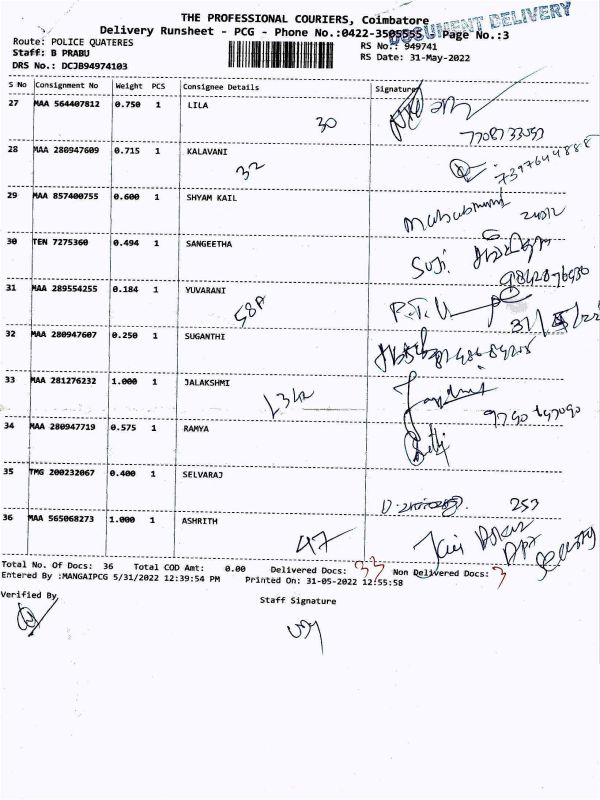 THE PROFESSIONAL COURIERS, Coimbatore
DOCUMENT DELIVERY
Delivery Runsheet - PCG - Phone No.:0422-3505555 Page No.:3
Route: POLICE QUATERES
RS No.: 949741
Staff: B PRABU
RS Date: 31-May-2022
DRS No.: DCJB94974103
S No Consignment No Weight PCS Consignee Details Signature
27 MAA 564407812 0.750 1 LILA
30
28 MAA 280947609 0.715 1 KALAVANI
32 7397644888
29 MAA 857400755 0.600 1 SHYAM KAIL
30 TEN 7275360 0.494 1 SANGEETHA
Suji
31 MAA 289554255 0.184 1 YUVARANI
58A
32 MAA 280947607 0.250 1 SUGANTHI
33 MAA 281276232 1.000 1 JALAKSHMI
34 MAA 280947719 0.575 1 RAMYA
35 TMG 200232067 0.400 1 SELVARAJ
253
36 MAA 565068273 1.000 1 ASHRITH
47
Total No. Of Docs: 36 Total COD Amt: 0.00 Delivered Docs: 33 Non Delivered Docs: 3
Entered By :MANGAIPCG 5/31/2022 12:39:54 PM Printed On: 31-05-2022 12:55:58
Verified By
Staff Signature